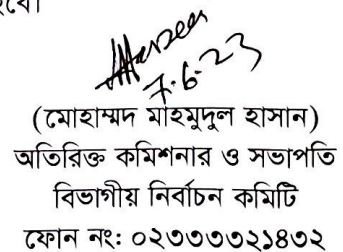 7.6.23
(মোহাম্মদ মাহমুদুল হাসান)
অতিরিক্ত কমিশনার ও সভাপতি
বিভাগীয় নির্বাচন কমিটি
ফোন নং: ০২৩৩৩৩২১৪৩২